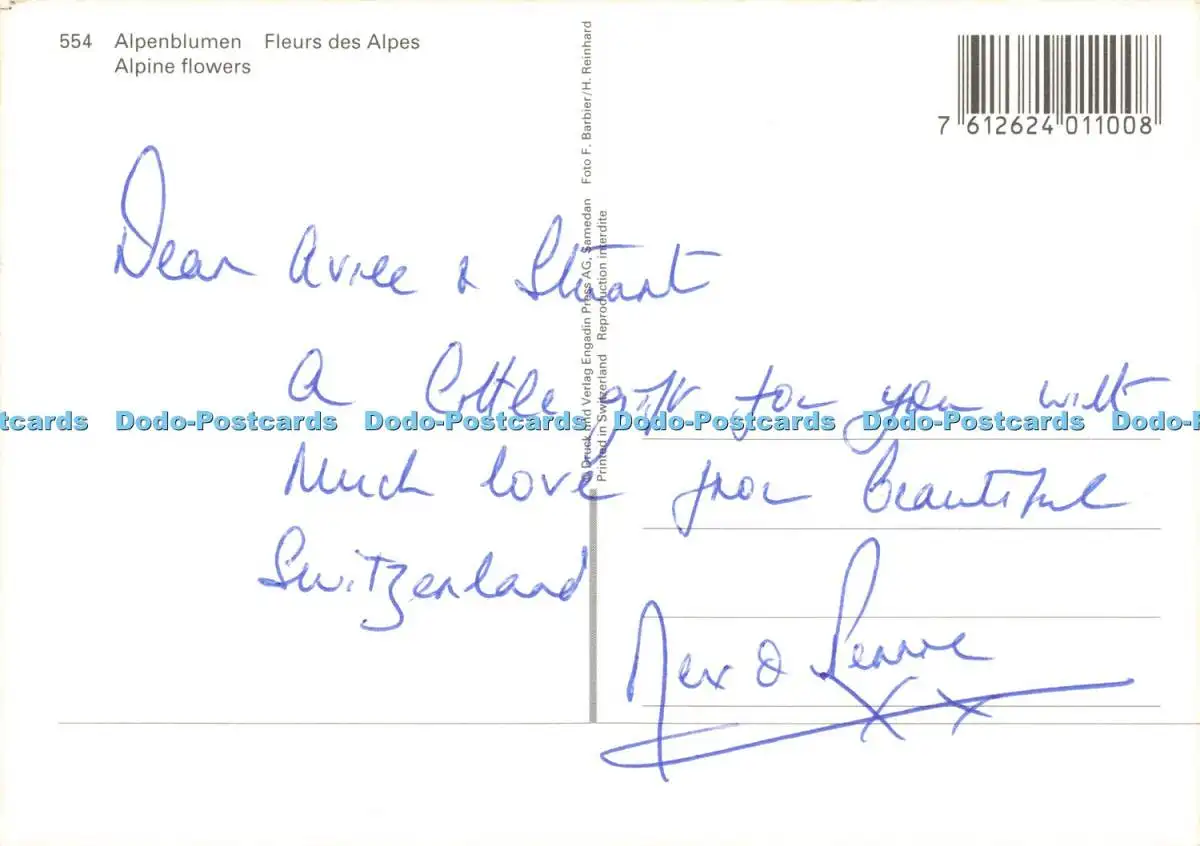 554 Alpenblumen Fleurs des Alpes
Alpine flowers
7 612624 011008
© Druck und Verlag Engadin Press AG, Samedan Foto F. Barbier/H. Reinhard
Printed in Switzerland Reproduction interdite
Dear & Stuart
A little gift for you with
Much love from beautiful
Switzerland
&
xx
Dodo-Postcards Dodo-Postcards Dodo-Postcards Dodo-Postcards Dodo-Postcards